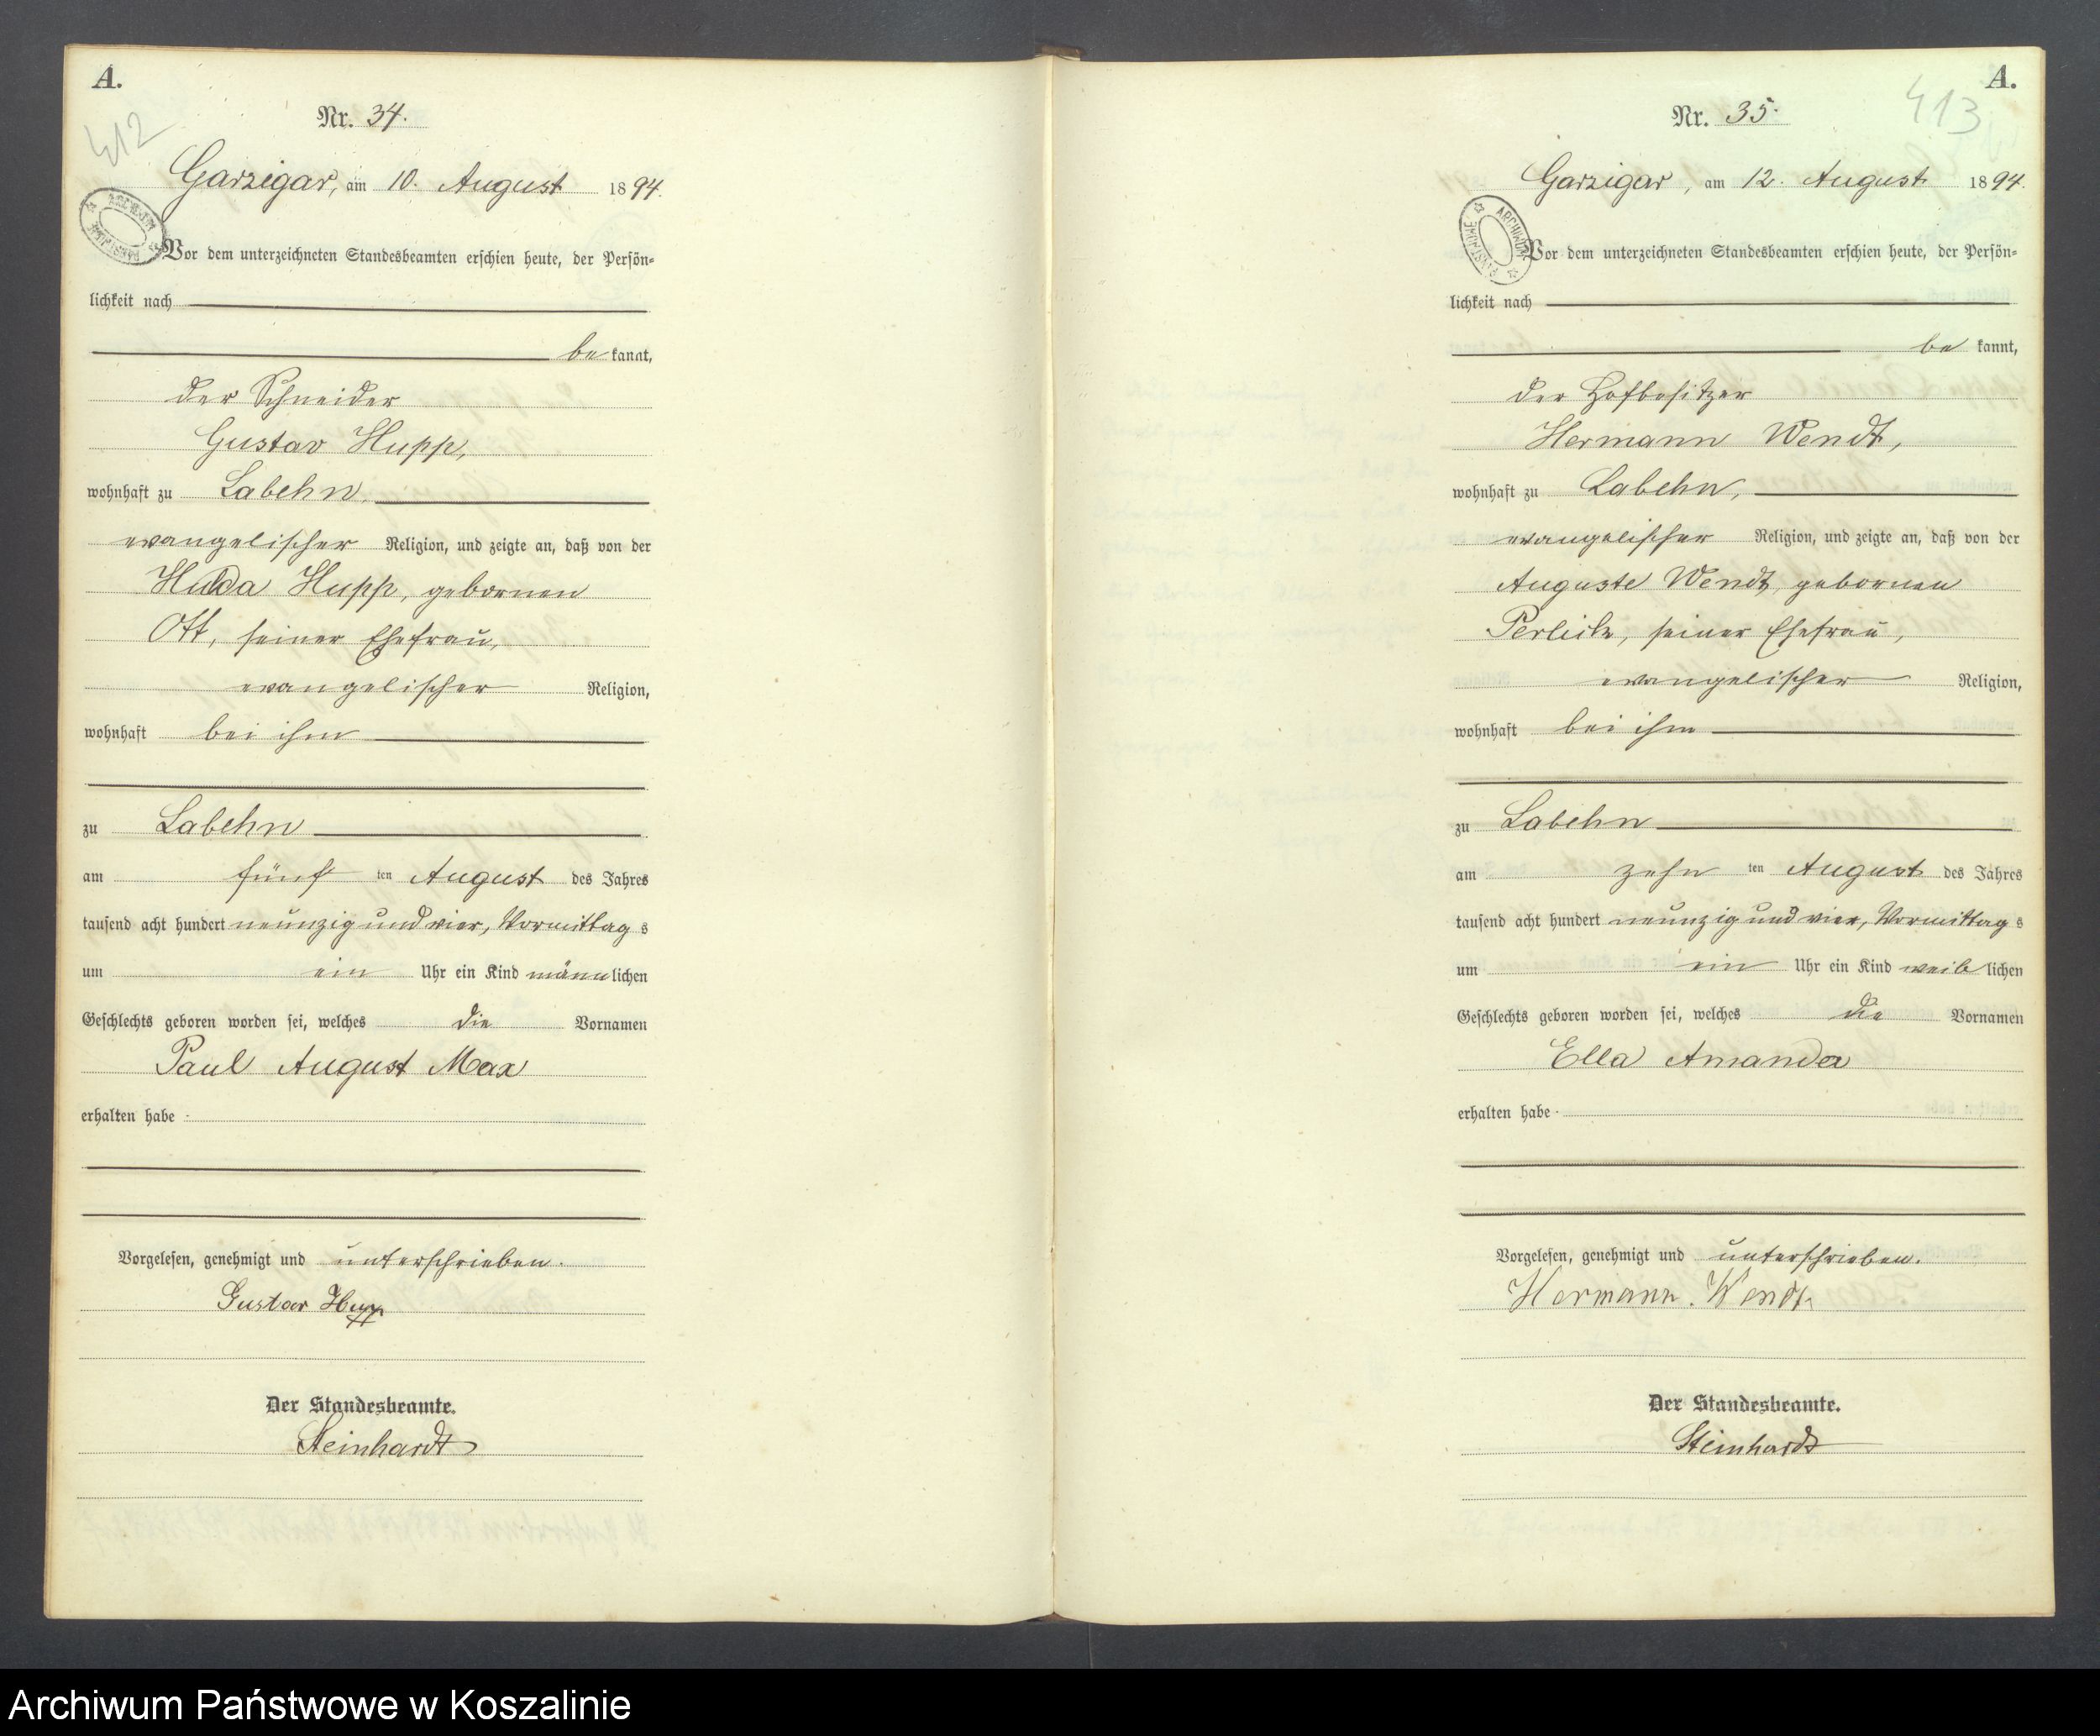 A.
412
Nr. 34.
Garzigar, am 10. August 1894.
Vor dem unterzeichneten Standesbeamten erschien heute, der Persön-
lichkeit nach
bekannt,
der Schneider
Gustav Hupp,
wohnhaft zu Labehn,
evangelischer Religion, und zeigte an, daß von der
Hulda Hupp, gebornen
Ott, seiner Ehefrau,
evangelischer Religion,
wohnhaft bei ihm
zu Labehn
am fünf ten August des Jahres
tausend acht hundert neunzig und vier, Vormittags
um ein Uhr ein Kind männlichen
Geschlechts geboren worden sei, welches die Vornamen
Paul August Max
erhalten habe
Vorgelesen, genehmigt und unterschrieben.
Gustav Hupp
Der Standesbeamte.
Steinhardt
A.
413
Nr. 35.
Garzigar, am 12. August 1894.
ARCHIWUM PAŃSTWOWE
Vor dem unterzeichneten Standesbeamten erschien heute, der Persön-
lichkeit nach
bekannt,
der Hofbesitzer
Hermann Wendt,
wohnhaft zu Labehn,
evangelischer Religion, und zeigte an, daß von der
Auguste Wendt, gebornen
Perlick, seiner Ehefrau,
evangelischer Religion,
wohnhaft bei ihm
zu Labehn
am zehn ten August des Jahres
tausend acht hundert neunzig und vier, Vormittags
um ein Uhr ein Kind weiblichen
Geschlechts geboren worden sei, welches die Vornamen
Ella Amanda
erhalten habe
Vorgelesen, genehmigt und unterschrieben.
Hermann. Wendt
Der Standesbeamte.
Steinhardt
Archiwum Państwowe w Koszalinie